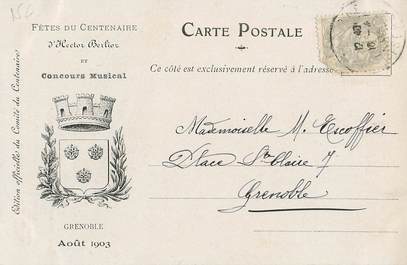 FÊTES DU CENTENAIRE
d'Hector Berlioz
ET
Concours Musical
Edition officielle du Comité du Centenaire
GRENOBLE
Août 1903
CARTE POSTALE
Ce côté est exclusivement réservé à l'adresse
Mademoiselle M. Escoffier
Place Ste Claire 7
Grenoble